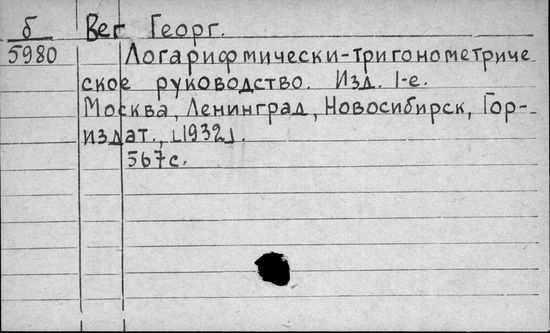 б Вег Георг.
5980 Логарифмически-тригонометриче
ское руководство. Изд. 1-е.
Москва, Ленинград, Новосибирск, Гор-
издат., [1932].
567 с.